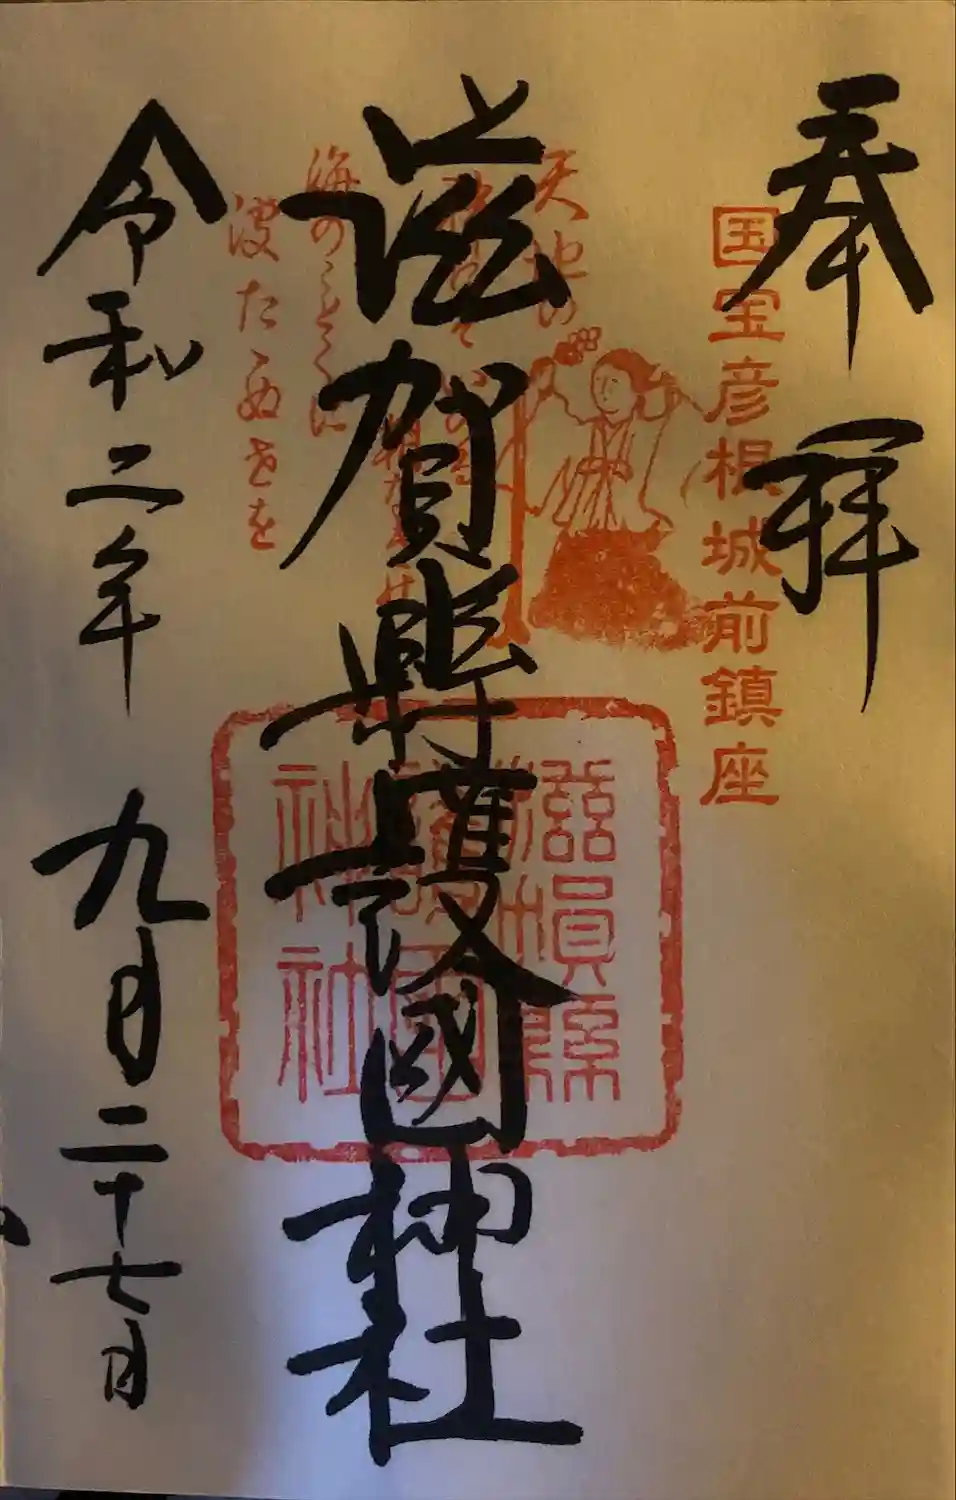 奉拝
国宝彦根城前鎮座
天地の
海のことくに
波たゝぬ世を
滋賀縣護國神社
滋賀縣
護國
神社
令和二年 九月二十七日